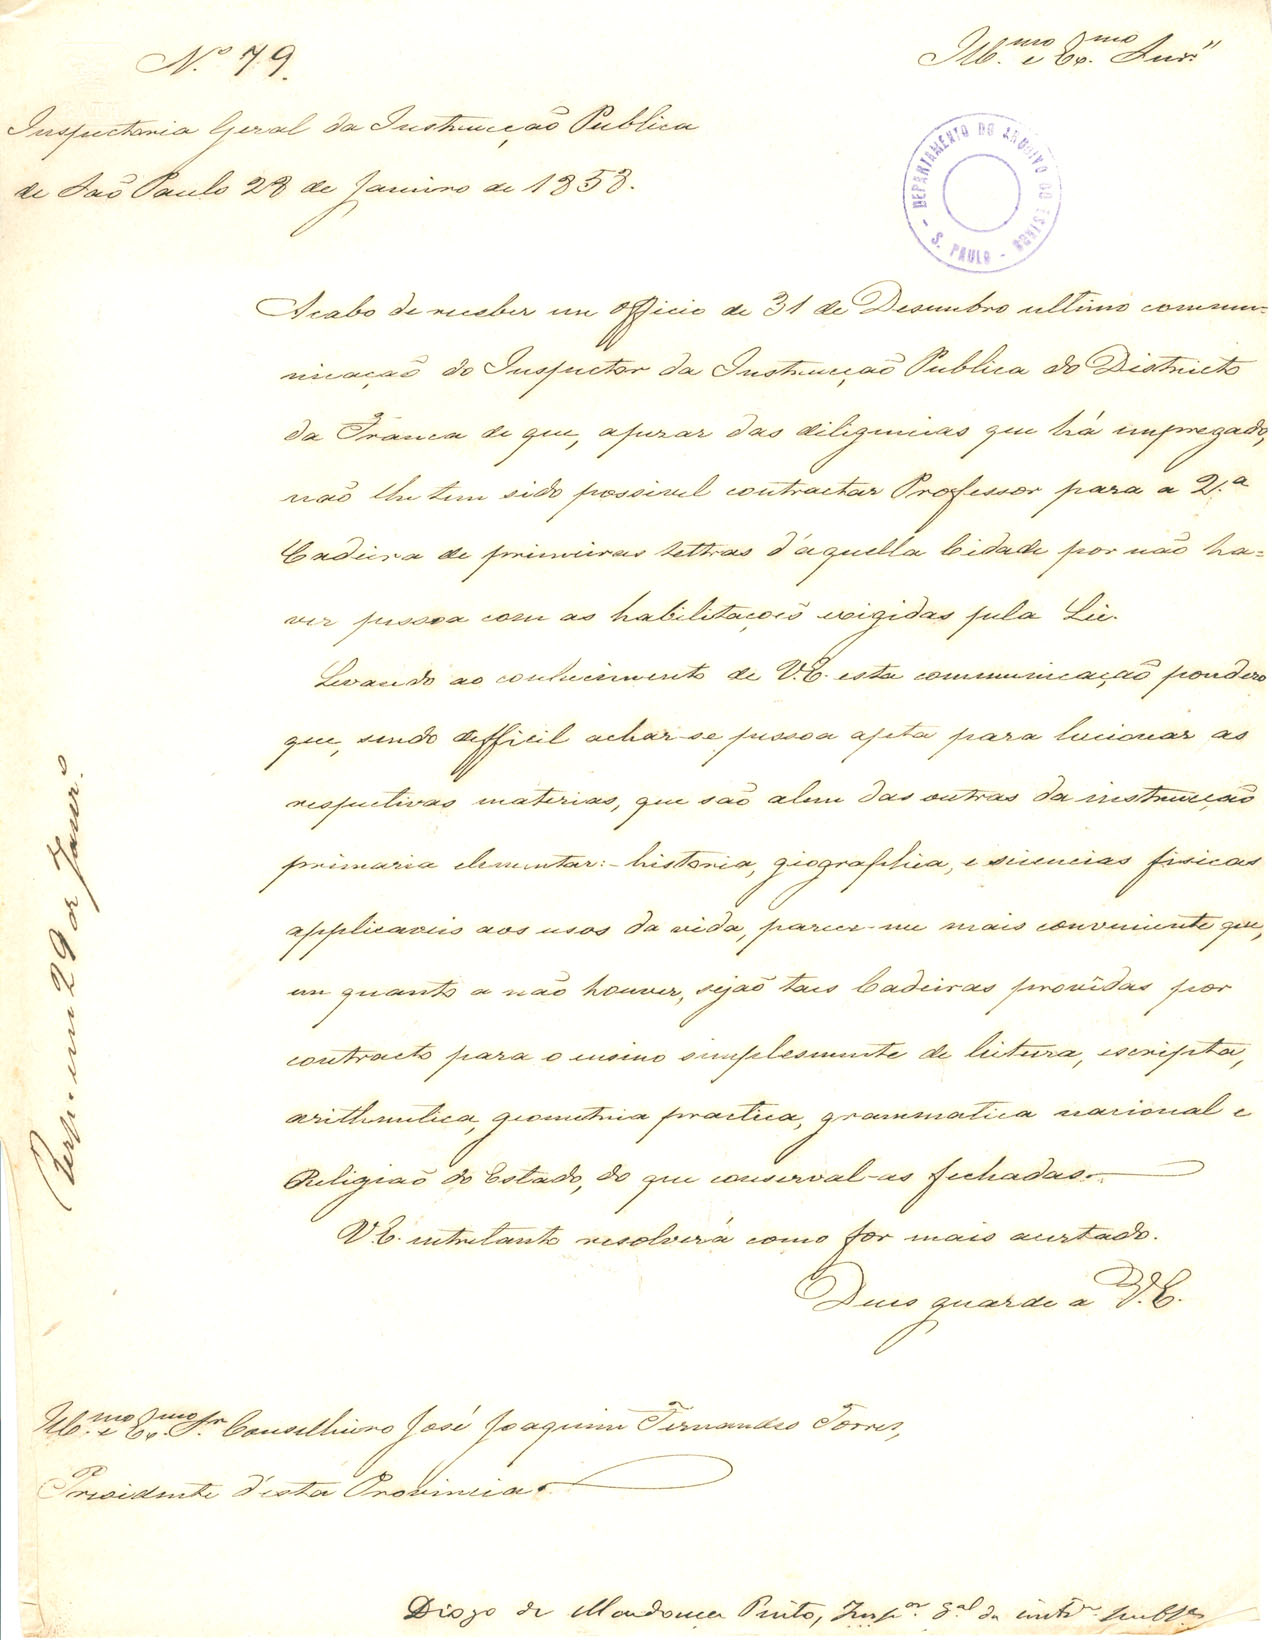 N.º 79.
Ill.mo e Ex.mo Snr.
Inspectoria Geral da Instrucção Publica
de São Paulo 28 de Janeiro de 1858.
DEPARTAMENTO DO ARCHIVO DO ESTADO - S. PAULO -
Acabo de receber em officio de 31 de Desembro ultimo commu-
nicação do Inspector da Instrucção Publica do Districto
da Franca de que, apezar das diligencias que há empregado,
não lhe tem sido possivel contractar Professor para a 2.ª
Cadeira de primeiras lettras d'aquella Cidade por não ha=
ver pessoa com as habilitações exigidas pela Lei.
Levando ao conhecimento de V.E. esta communicação pondero
que, sendo difficil achar-se pessoa apta para leccionar as
respectivas materias, que são alem das outras da instrucção
primaria elementar:- historia, geographia, e sciencias fisicas
applicaveis aos usos da vida, parece-me mais conveniente que,
em quanto a não houver, sejão taes Cadeiras providas por
contracto para o ensino simplesmente de leitura, escripta,
arithmetica, geometria practica, grammatica nacional e
Religião do Estado, do que conserval-as fechadas.
V.E. entretanto resolverá como for mais acertado.
Deus guarde a V.E.
Ill.mo e Ex.mo Sr. Conselheiro José Joaquim Fernandes Torres,
Presidente d'esta Provincia.
Diogo de Mendonça Pinto, Insp.or g.al da instr. publ.ca
Resp. em 29 de Janr.o